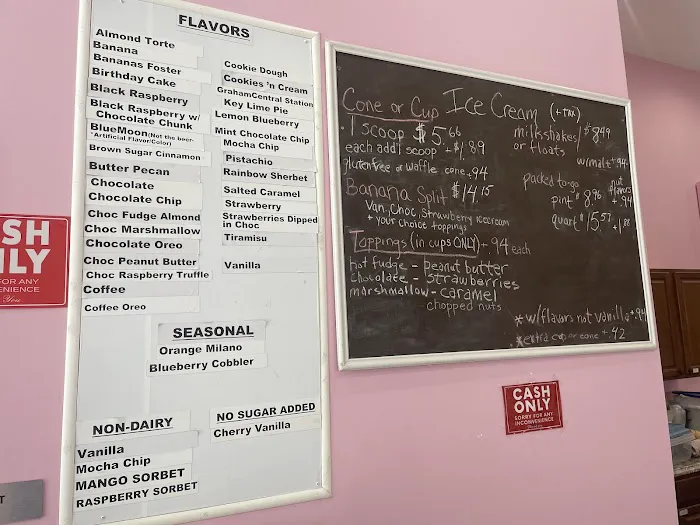 FLAVORS
Almond Torte
Banana
Bananas Foster
Birthday Cake
Black Raspberry
Black Raspberry w/
Chocolate Chunk
BlueMoon(Not the beer-
Artificial Flavor/Color)
Brown Sugar Cinnamon
Butter Pecan
Chocolate
Chocolate Chip
Choc Fudge Almond
Choc Marshmallow
Chocolate Oreo
Choc Peanut Butter
Choc Raspberry Truffle
Coffee
Coffee Oreo
Cookie Dough
Cookies 'n Cream
GrahamCentral Station
Key Lime Pie
Lemon Blueberry
Mint Chocolate Chip
Mocha Chip
Pistachio
Rainbow Sherbet
Salted Caramel
Strawberry
Strawberries Dipped
in Choc
Tiramisu
Vanilla
SEASONAL
Orange Milano
Blueberry Cobbler
NON-DAIRY
Vanilla
Mocha Chip
MANGO SORBET
RASPBERRY SORBET
NO SUGAR ADDED
Cherry Vanilla
Cone or Cup Ice Cream (+TAX)
1 scoop $5.66
each add'l scoop +$1.89
gluten free or waffle cone +.94
Banana Split $14.15
Van, Choc, Strawberry icecream
+ your choice toppings
Toppings (in cups ONLY) + .94 each
hot fudge - peanut butter
chocolate - strawberries
marshmallow - caramel
chopped nuts
milkshakes/ $8.49
or floats
w/malt +.94
packed to-go
nut
flavors
pint $8.96 +.94
quart $15.57 +1.88
*w/flavors not vanilla +.94
*extra cup or cone +.42
CASH
ONLY
SORRY FOR ANY
INCONVENIENCE
CASH
ONLY
FOR ANY
INCONVENIENCE
You
T